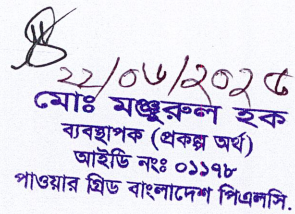 ২২/০৬/২০২৫
মোঃ মঞ্জুরুল হক
ব্যবস্থাপক (প্রকল্প অর্থ)
আইডি নংঃ ০১১৭৮
পাওয়ার গ্রিড বাংলাদেশ পিএলসি.